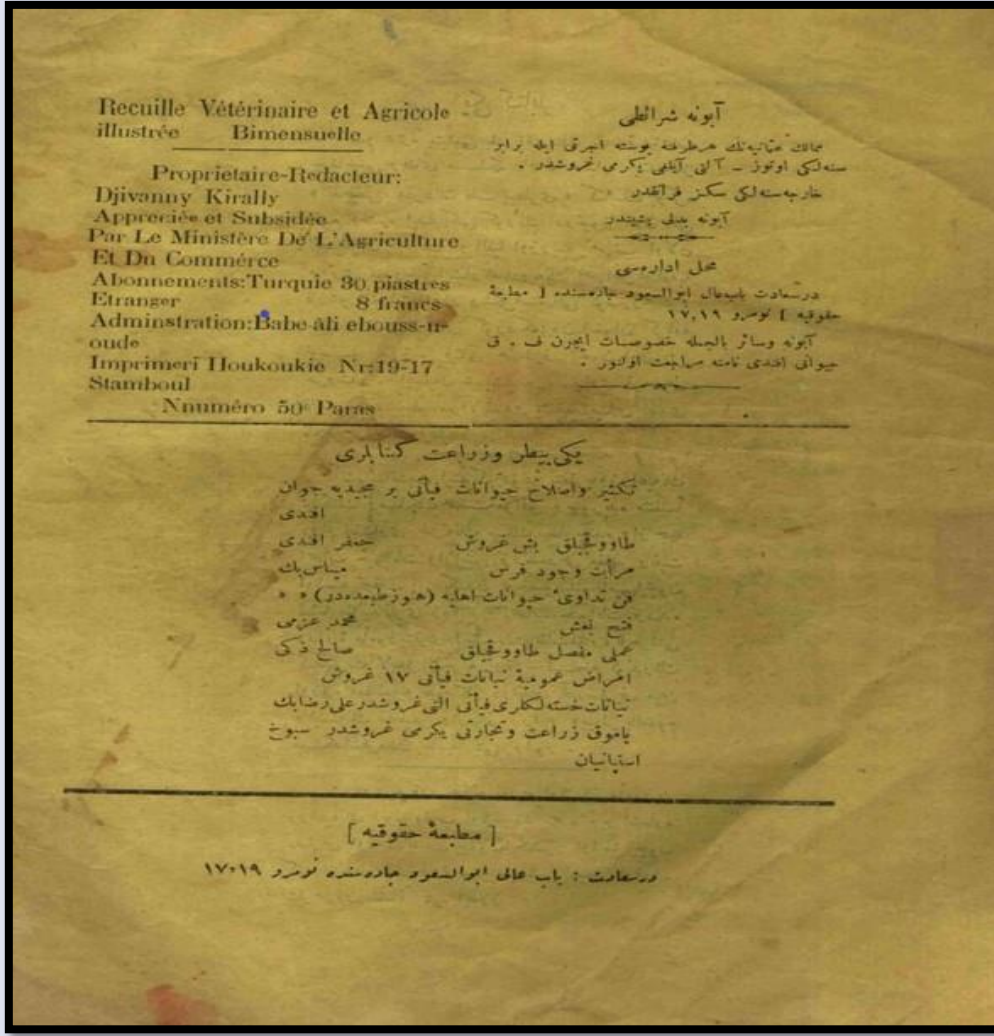 Recuille Vétérinaire et Agricole
illustrée Bimensuelle
Proprietaire-Redacteur:
Djivanny Kirally
Appreciée et Subsidée
Par Le Ministére De L'Agriculture
Et Du Commérce
Abonnements:Turquie 30 piastres
Etranger 8 francs
Adminstration:Babe âli ebouss-u-
oude
Imprimeri Houkoukie Nr:19-17
Stamboul
Nnuméro 50 Paras
آبونه شرائطی
ممالك عثمانیه‌نك هرطرفنه پوسته اجرتی ایله برابر
سنه‌لکی اوتوز ـ آلتی آیلغی یکرمی غروشدر .
خارجیه‌سنه‌لکی سکز فرانقدر
آبونه بدلی پشیندر
محل اداره‌سی
درسعادت بابعالی ابوالسعود جاده‌سنده [ مطبعهٔ
حقوقیه ] نومرو ١٧,١٩
آبونه وسائر بالجمله خصوصات ایچون ف . ق
جیوانی افندی نامنه مراجعت اولنور .
یکی بیطر وزراعت کتابلری
تکثیر واصلاح حیوانات فیأتی بر مجیدیه جوان
افندی
طاووقجیلق بش غروش جعفر افندی
مرآت وجود فرس میناس بك
فن تداوئ حیوانات اهلیه (هنوز طبعده‌در) » »
فتح نعش محمد عزمی
عملی مفصل طاووقجیلق صالح ذکی
امراض عمومیهٔ نباتات فیأتی ١٧ غروش
نباتات خسته‌لکلری فیأتی التی غروشدر علی رضا بك
پاموق زراعت وتجارتی یکرمی غروشدر سبوخ
استپانیان
[ مطبعهٔ حقوقیه ]
درسعادت : باب عالی ابوالسعود جاده‌سنده نومرو ١٧٠١٩